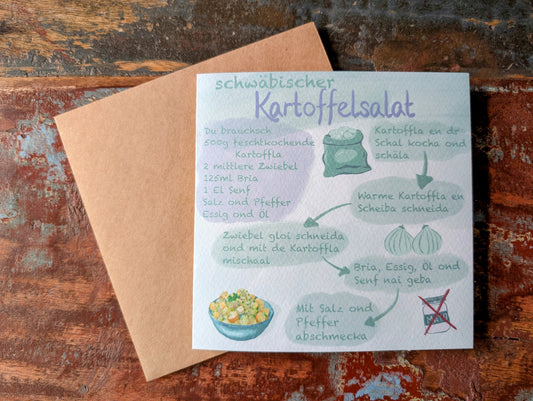 schwäbischer
Kartoffelsalat
Du brauchsch
500g feschtkochende
Kartoffla
2 mittlere Zwiebel
125ml Bria
1 El Senf
Salz ond Pfeffer
Essig ond Öl
Kartoffla en dr
Schal kocha ond
schäla
Warme Kartoffla en
Scheiba schneida
Zwiebel gloi schneida
ond mit de Kartoffla
mischaal
Bria, Essig, Öl ond
Senf nai geba
Mit Salz ond
Pfeffer
abschmecka